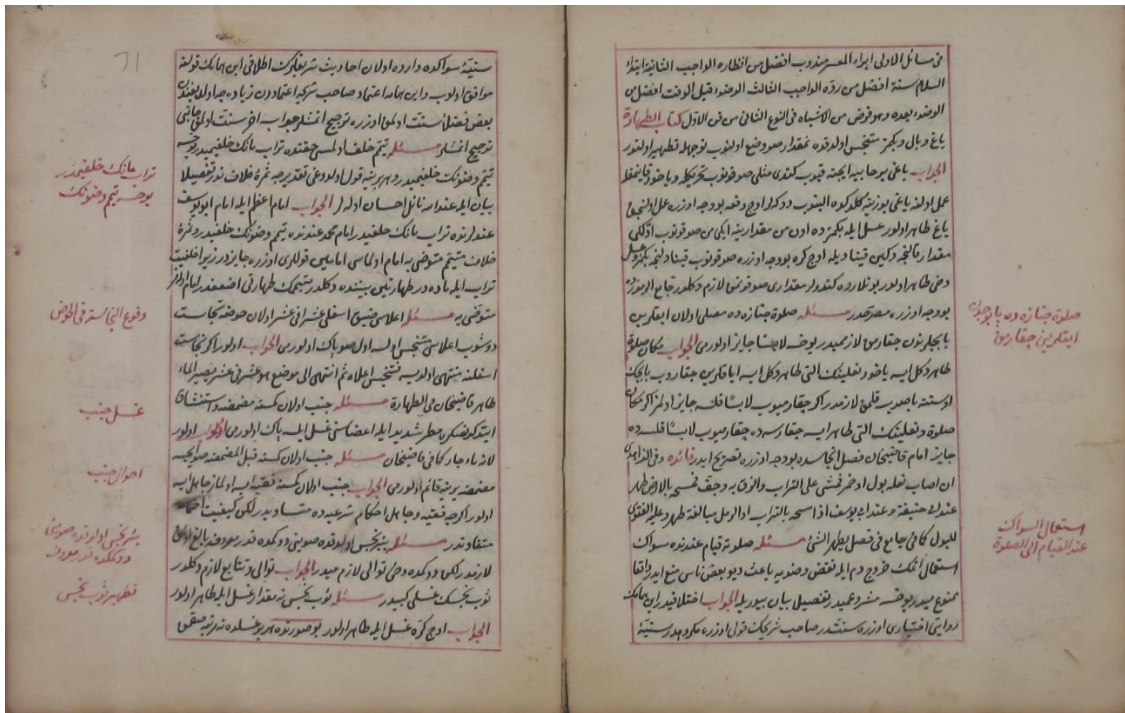 فى مسائل الاولى ابراء المعسر مندوب افضل من انظاره الواجب الثانية ابتداء
السلام سنة افضل من رده الواجب الثالث الوضوء قبل الوقت افضل من
الوضوء بعده وهو فرض من الاشباه فى النوع الثانى من فن الاول كتاب الطهارة
ياغ وبال وبكمز متنجس اولدقده نه مقدار صو وضع اولنوب نه وجهله تطهير اولنور
الجواب ياغى بر خابيه ايچنه قيوب كندى مثلى صو قونوب تحريك
ياغ طاهر اولور عسل ايله بكمزده اون من مقدارينه ايكى من صو قونوب اولكى
مقدار قالنجه دكين قينادیله اوچ كره بو وجه اوزره صو قونوب
دخى طاهر اولور بونلارده كندولر مقدارى صو قونمق لازم دكلدر جامع الرموزده
بو وجه اوزره مصرحدر مسئله صلوة جنازه ده مصلى اولان ايقلرين
چقارمق لازمميدر يوخسه لابسا جايز اولورمى الجواب مكان صلوة
طاهر دكل ايسه ياخود نعلينك التى طاهر دكل ايسه اياقلرين چقاروب
صلوة ونعلينك التى طاهر ايسه چقارسه ده چقارميوب لابسا قلسه ده
جايز امام قاضيخان فصل النجاسه ده بو وجه اوزره تصريح ايدر فائده وفى الزاهدى
ان اصاب نعله بول او خمر فمشى على التراب والزق به وجف فمسحه بالارض طهر
عند ابى حنيفة وعند ابى يوسف اذا مسحه بالتراب او الرمل مبالغة طهر وعليه الفتوى
للبول كافى جامع فى فصل يطهر الشئ مسئله صلوته قيام عندنده سواك
استعمال اتمك خروج دم ايله نقض وضوءيه باعث ديو بعض ناس منع ايدر واقعا
ممنوع ميدر يوخسه مشروعميدر تفصيل بيان بيوريله الجواب اختلافيدر ابن همامك
روايتى اختيارى اوزره سنتدر صاحب شرعك قولى اوزره مكروهدر سنية
صلوة جنازه ده پابوجدن
ايقلرينى چقارمق
استعمال السواك
عند القيام الى الصلوة
٦١
سنية سواكده وارده اولان احاديث شريفه نك اطلاقى ابن همامك قولنه
موافق اولوب وابن همامه اعتماد صاحب شرعه اعتماددن زياده
بعض فضلا سنت اولمق اوزره ترجيح اتمشلر
ترجيح اتمشلر مسئله تيمم خلف اولمسى حقنده تراب مائك خلفيميدر يوخسه
تيمم وضونك خلفيميدر وهر برينه قول اولدوغى تقديرجه ثمرۀ خلاف ندر تفصيلا
بيان ايله عند الله نائل احسان اوله لر الجواب امام اعظم ايله امام ابو يوسف
عندلرنده تراب مائك خلفيدر امام محمد عندنده تيمم وضونك خلفيدر وثمرۀ
خلاف متيمم متوضى يه امام اولماسى امامين قوللرى اوزره جايزدر زيرا خلفيت
تراب ايله ماءده در طهارتين بيننده دكلدر متيممك طهارتى اضعفدر امام اولماز
متوضى يه مسئله اعلاسى ضيق اسفلى عشر فى عشر اولان حوضه نجاست
دوشوب اعلاسى متنجس اولسه اول صو پاك اولورمى الجواب اولور اكر نجاست
اسفلنه منتهى اولديسه تنجس اعلاه ثم انتهى الى موضع هو عشر فى عشر يصير الماء
طاهر قاضيخان من الطهارة مسئله جنب اولان كمسنه مضمضه واستنشاق
ايتدكدنصكره مطر شديد ايله اعضاسنى غسل ايلسه پاك اولورمى الجواب اولور
لانه ماء جار كافى قاضيخان مسئله جنب اولان كمسنه قبل المضمضه صو ايچسه
مضمضه يرينه قائم اولورمى الجواب جنب اولان كمسنه فقيه ايسه اولماز جاهل ايسه
اولور اكرچه فقيه وجاهل احكام شرعيه ده متساويدر لكن كيفيت
متفاوتدر مسئله بئر نجس اولدقده صوينى دوكمكده قدر معروف بالغ اولمق
لازمدر لكن دوكمكده دخى توالى لازم ميدر الجواب توالى وتتابع لازم دكلدر
ثوب نجسك غسلى كبيدر مسئله ثوب نجس نه مقدار غسل ايله طاهر اولور
الجواب اوچ كره غسل ايله طاهر اولور بو صورتده هر بر غسلده نه مرتبه صقمق
تراب مائك خلفيميدر
يوخسه تيمم وضونك
وقوع النجاسة فى الحوض
غسل جنب
احوال جنب
بئر نجس اولدقده صوينى
دوكمكده قدر معروف
تطهير ثوب نجس